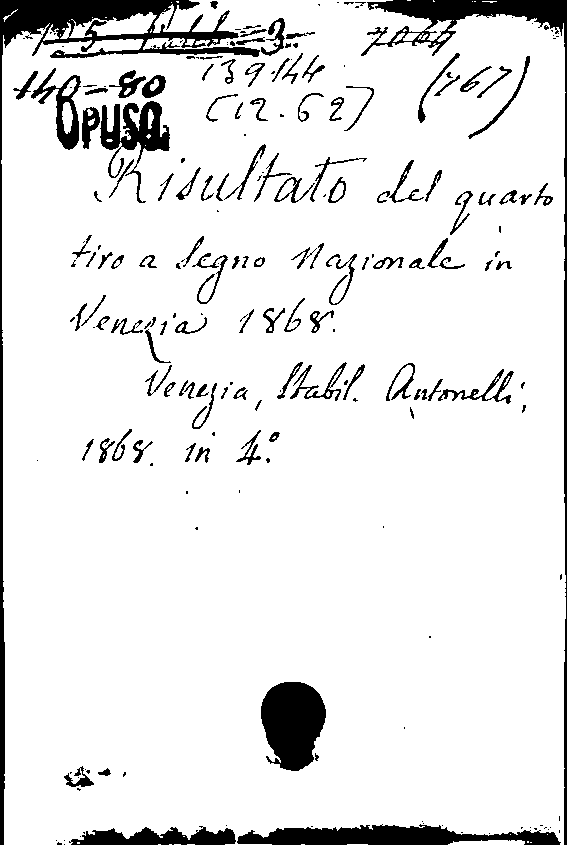 125. 3. 7064
140-80 139144 (767)
Opusc. (12.62)
Risultato del quarto
tiro a Segno Nazionale in
Venezia 1868.
Venezia, Stabil. Antonelli,
1868. in 4.º